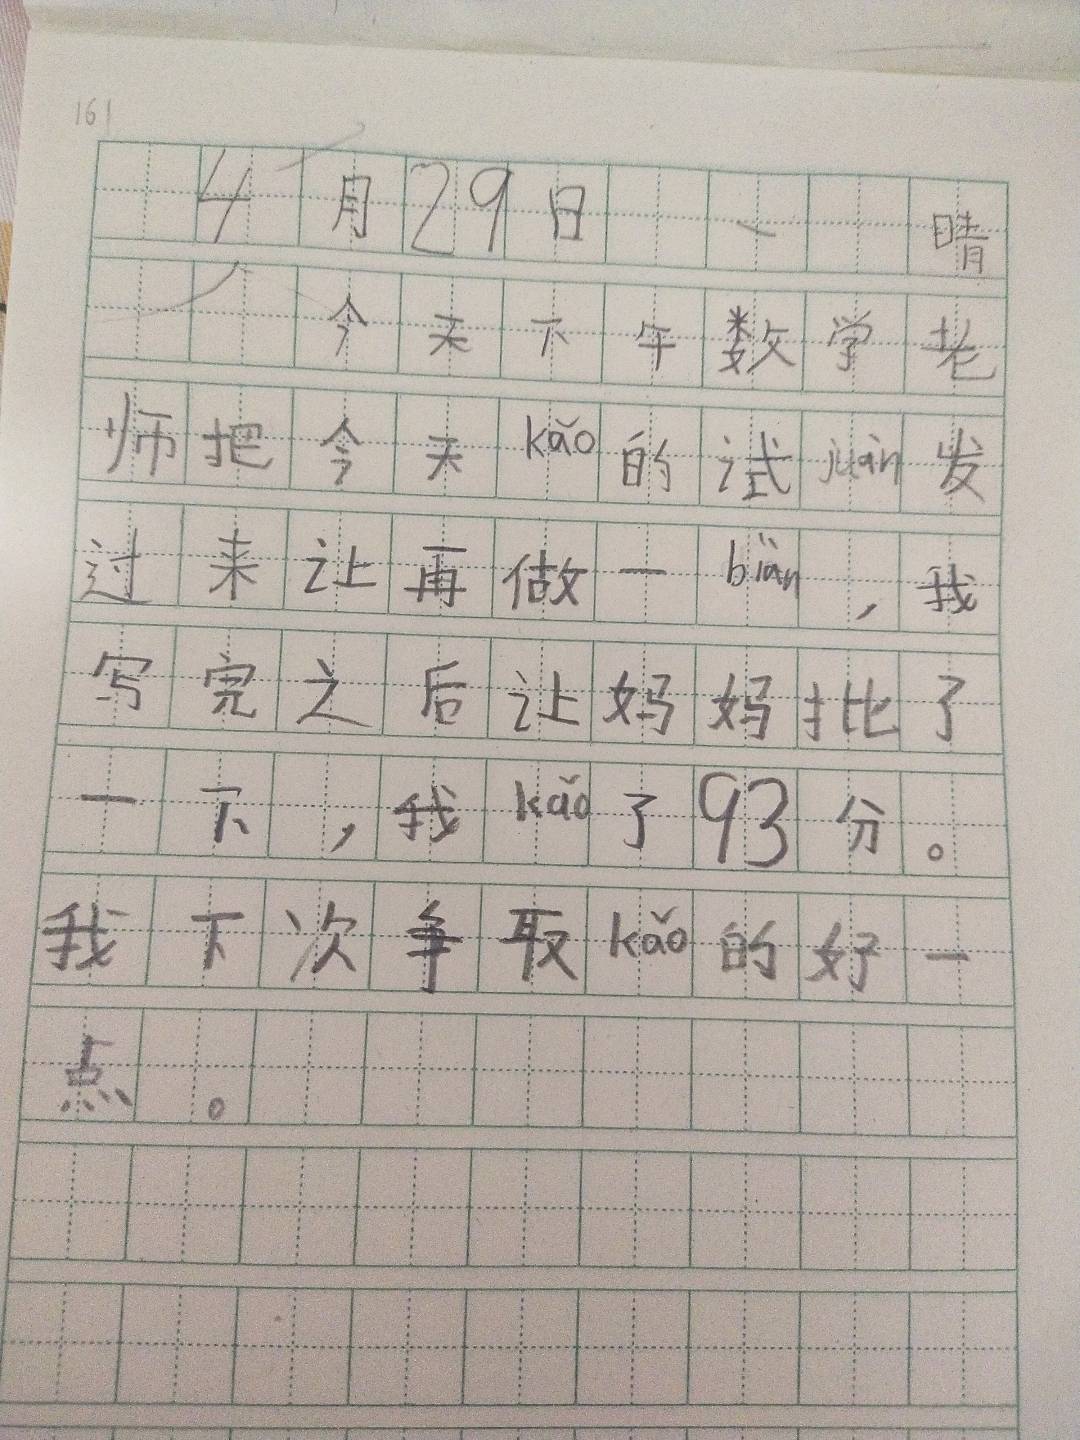 161
4月29日 晴
今天下午数学老
师把今天kǎo的试juàn发
过来让再做一biàn，我
写完之后让妈妈批了
一下，我kǎo了93分。
我下次争取kǎo的好一
点。